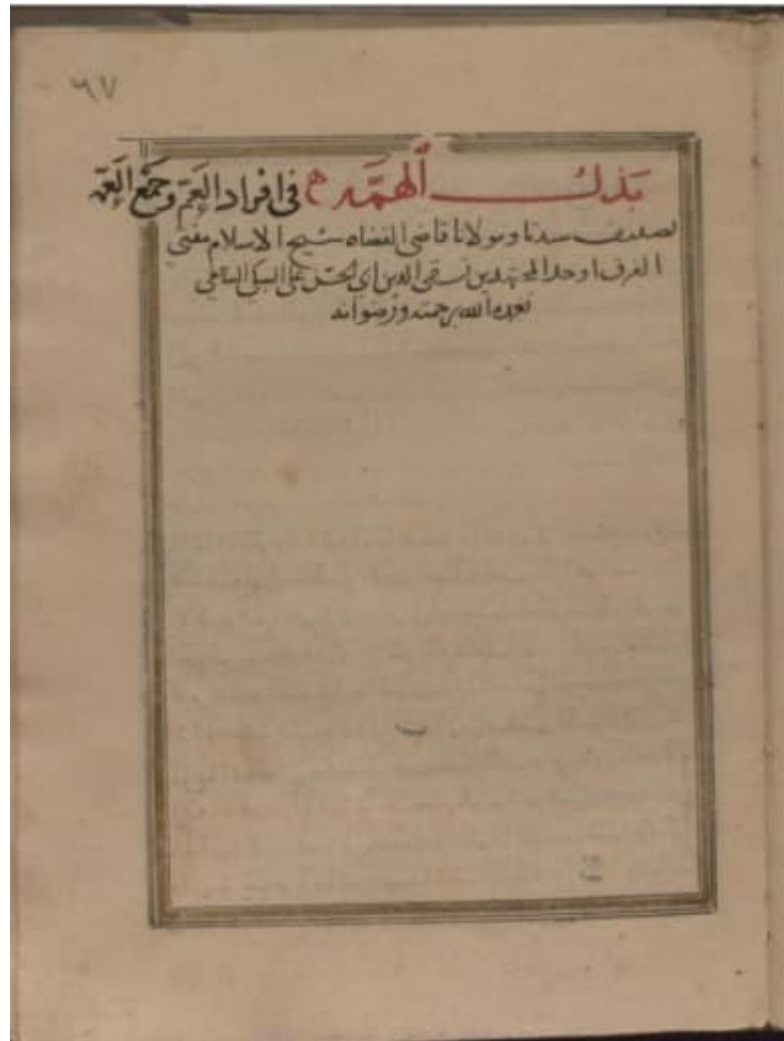 ٦٧
بذل الهمة في افراد العم وجمع العمة
تصنيف سيدنا ومولانا قاضي القضاه شيخ الاسلام مفتي
الفرق اوحد المجتهدين تقي الدين ابي الحسن علي السبكي الشافعي
تغمده الله برحمته ورضوانه